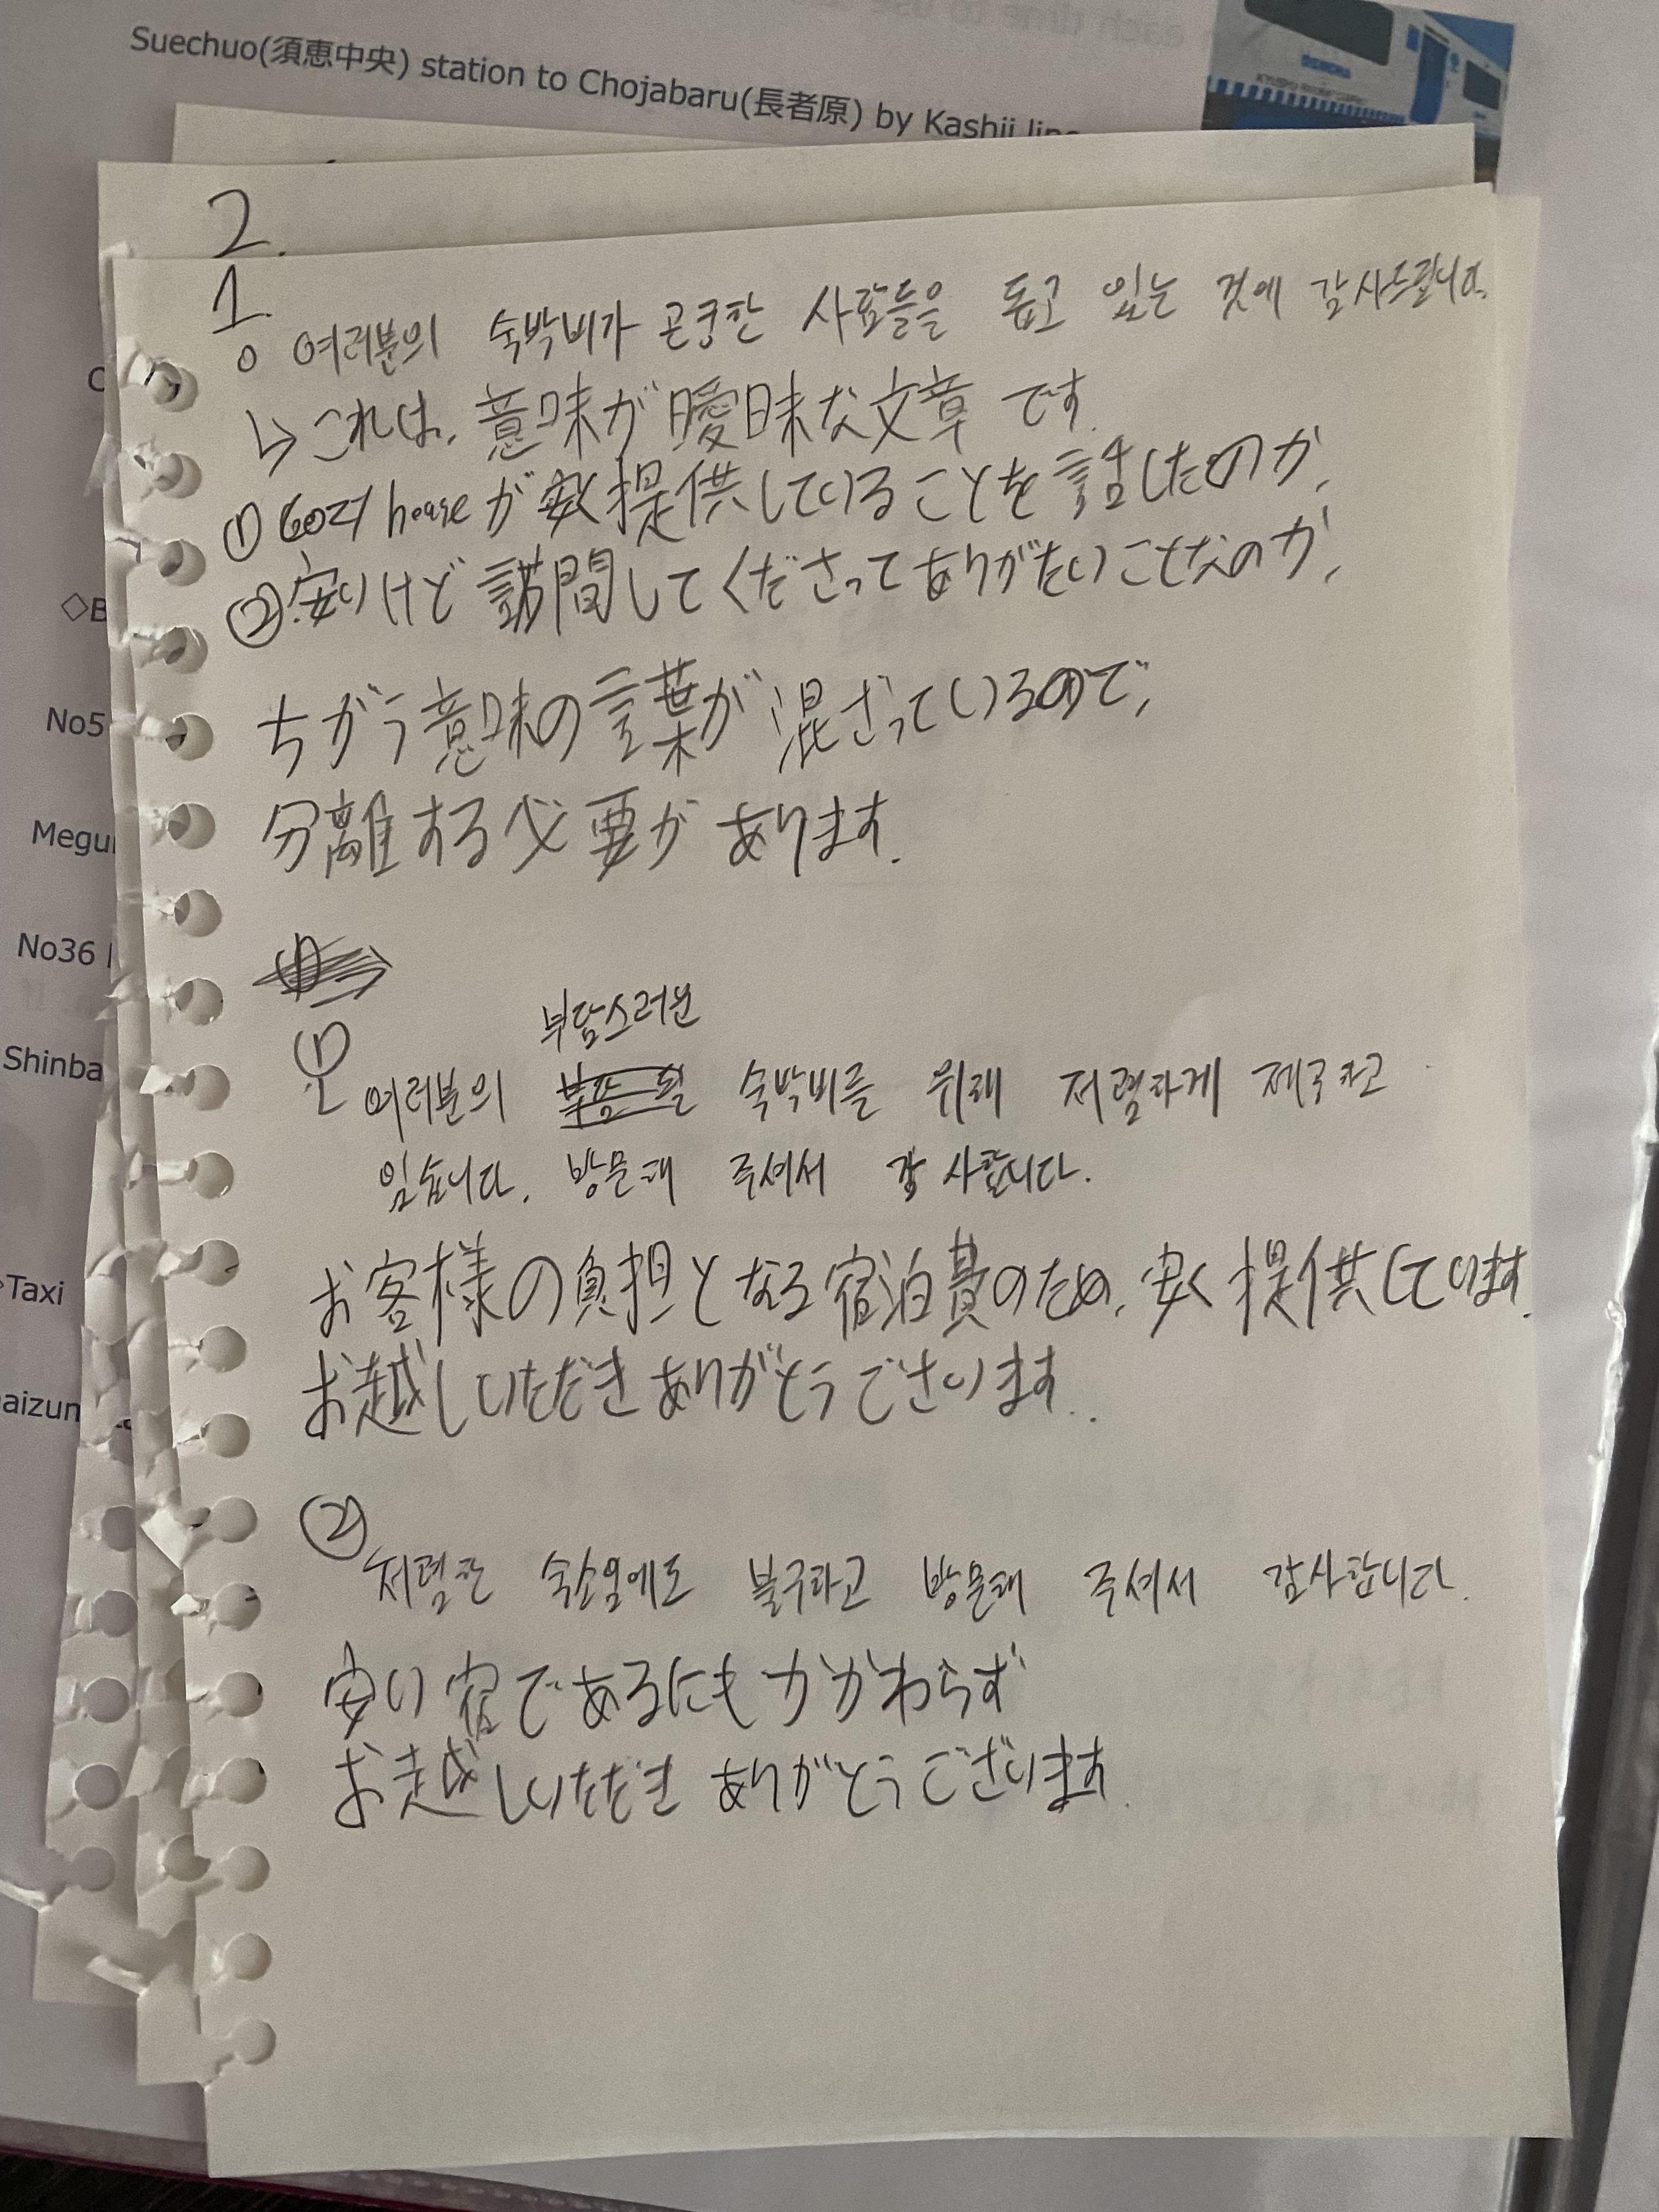 Suechuo(須恵中央) station to Chojabaru(長者原) by Kashii line
2.
1.
여러분의 숙박비가 곤궁한 사람들을 돕고 있는 것에 감사드립니다.
↳ これは、意味が曖昧な文章です.
① house が 安く提供していることを話したのか、
② 安いけど 訪問してくださって ありがたいことなのか、
ちがう意味の言葉が 混ざっているので、
分離する必要が あります.
①
부담스러운
여러분의 숙박비를 위해 저렴하게 제공하고
있습니다. 방문해 주셔서 감사합니다.
お客様の負担となる宿泊費のため、安く提供しています.
お越しいただき ありがとうございます..
②
저렴한 숙소임에도 불구하고 방문해 주셔서 감사합니다.
安い宿であるにもかかわらず
お越しいただき ありがとうございます.
◇B
No5
Megu
No36
Shinba
Taxi
aizun